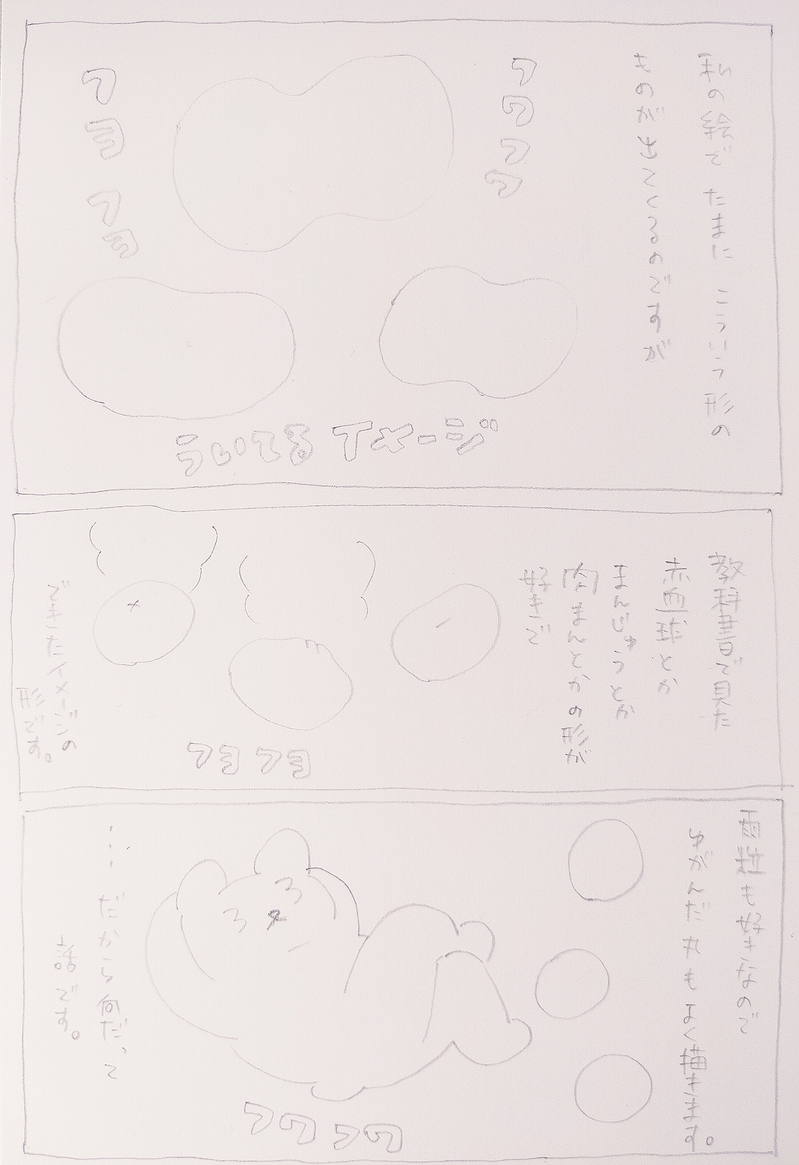 私の絵で たまに こういう形の
ものが出てくるのですが
フワフワ
フヨフヨ
ういてるイメージ
教科書で見た
赤血球とか
まんじゅうとか
肉まんとかの形が
好きで
フヨフヨ
できたイメージの
形です。
雨粒も好きなので
ゆがんだ丸もよく描きます。
フワフワ
…だから何だって
話です。